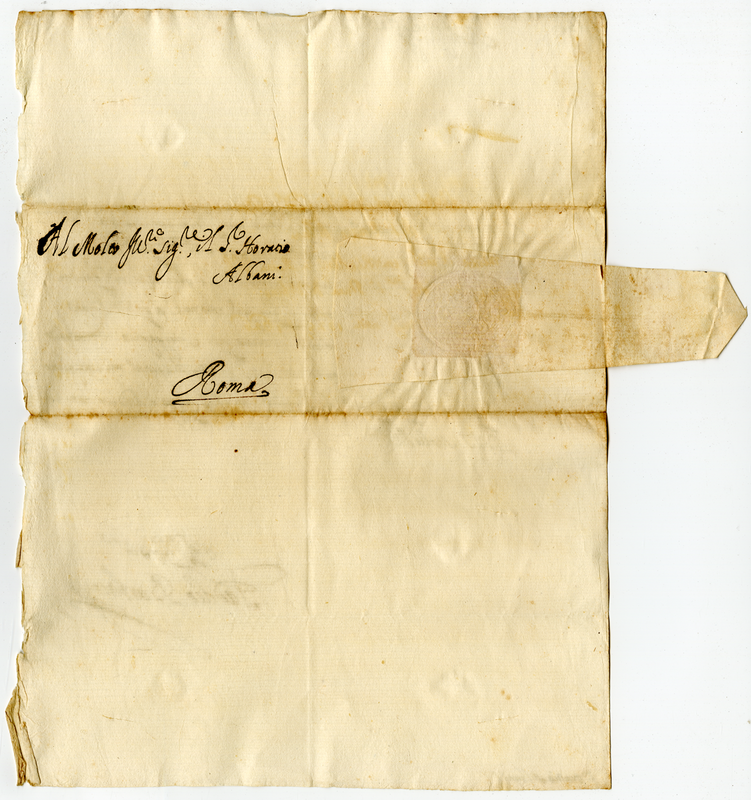 Al Molto Ill.re Sig.re, Il S.r Horacio
Albani.
Roma